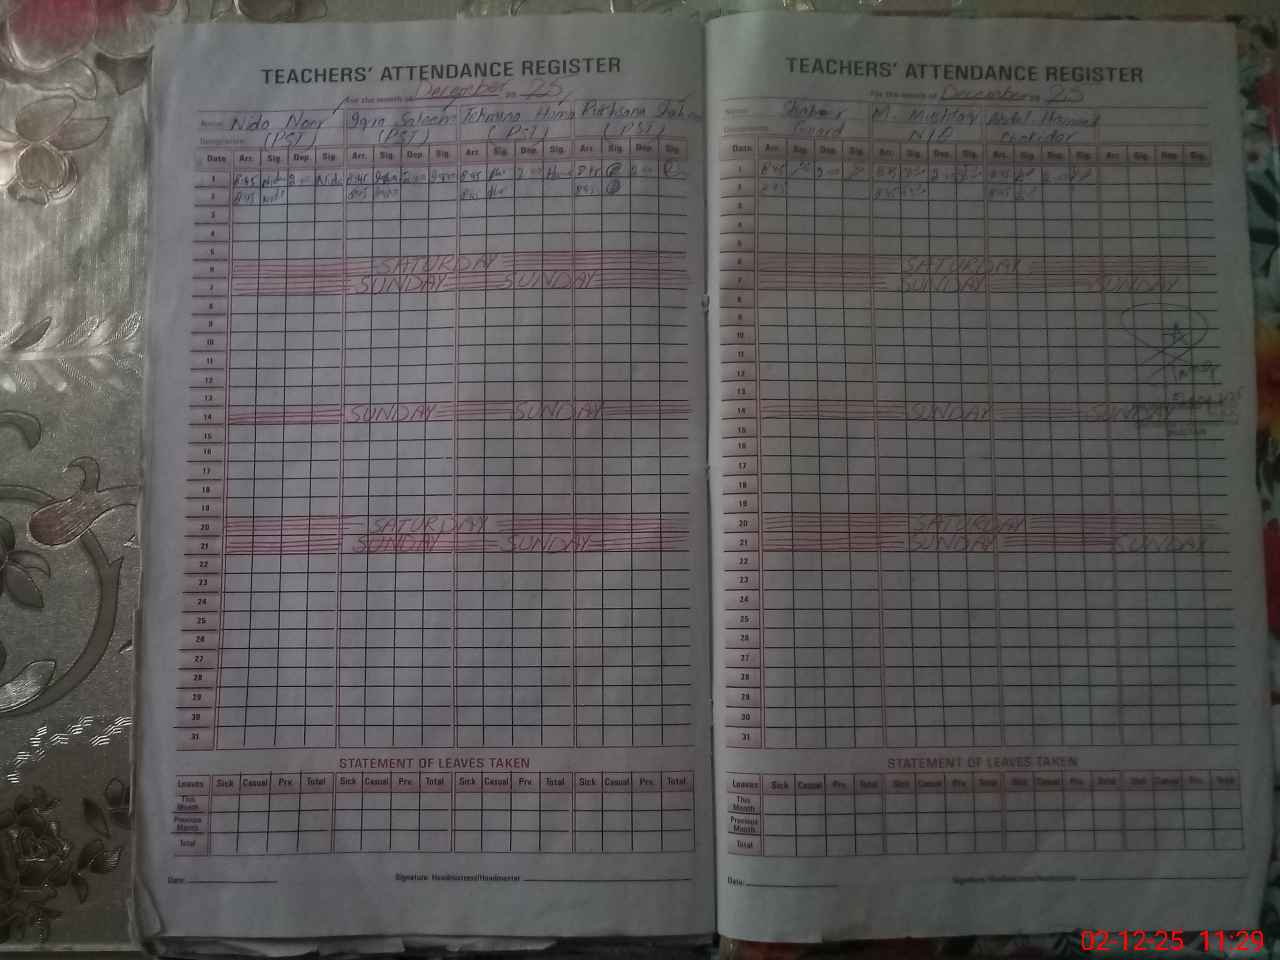 TEACHERS' ATTENDANCE REGISTER
For the month of December 20 25
Name Nida Noor Iqra Saleem Tehmina Huma Rukhsana Shaheen
Designation (PST) (PST) (PST) (PST)
Date Arr. Sig. Dep. Sig. Arr. Sig. Dep. Sig. Arr. Sig. Dep. Sig. Arr. Sig. Dep. Sig.
1 8:45 Nida 2:00 Nida 8:45 Iqra 2:00 Iqra 8:45 2:00 8:45 2:00
2 8:45 8:45 8:45 8:45
3
4
5
6 SATURDAY
7 SUNDAY SUNDAY
8
9
10
11
12
13
14 SUNDAY SUNDAY
15
16
17
18
19
20 SATURDAY
21 SUNDAY SUNDAY
22
23
24
25
26
27
28
29
30
31
STATEMENT OF LEAVES TAKEN
Leaves Sick Casual Prv. Total Sick Casual Prv. Total Sick Casual Prv. Total Sick Casual Prv. Total
This Month
Previous Month
Total
Date: Signature Headmistress/Headmaster
TEACHERS' ATTENDANCE REGISTER
For the month of December 20 25
Name M. Mushtaq Abdul Hameed
Designation Guard N/Q
Date Arr. Sig. Dep. Sig. Arr. Sig. Dep. Sig. Arr. Sig. Dep. Sig. Arr. Sig. Dep. Sig.
1 8:45 2:00 8:45 2:00 8:45 2:00
2 8:45 8:45 8:45
3
4
5
6 SATURDAY
7 SUNDAY SUNDAY
8
9
10
11
12
13
14 SUNDAY SUNDAY
15
16
17
18
19
20 SATURDAY
21 SUNDAY SUNDAY
22
23
24
25
26
27
28
29
30
31
STATEMENT OF LEAVES TAKEN
Leaves Sick Casual Prv. Total Sick Casual Prv. Total Sick Casual Prv. Total Sick Casual Prv. Total
This Month
Previous Month
Total
Date: Signature Headmistress/Headmaster
02-12-25 11:29